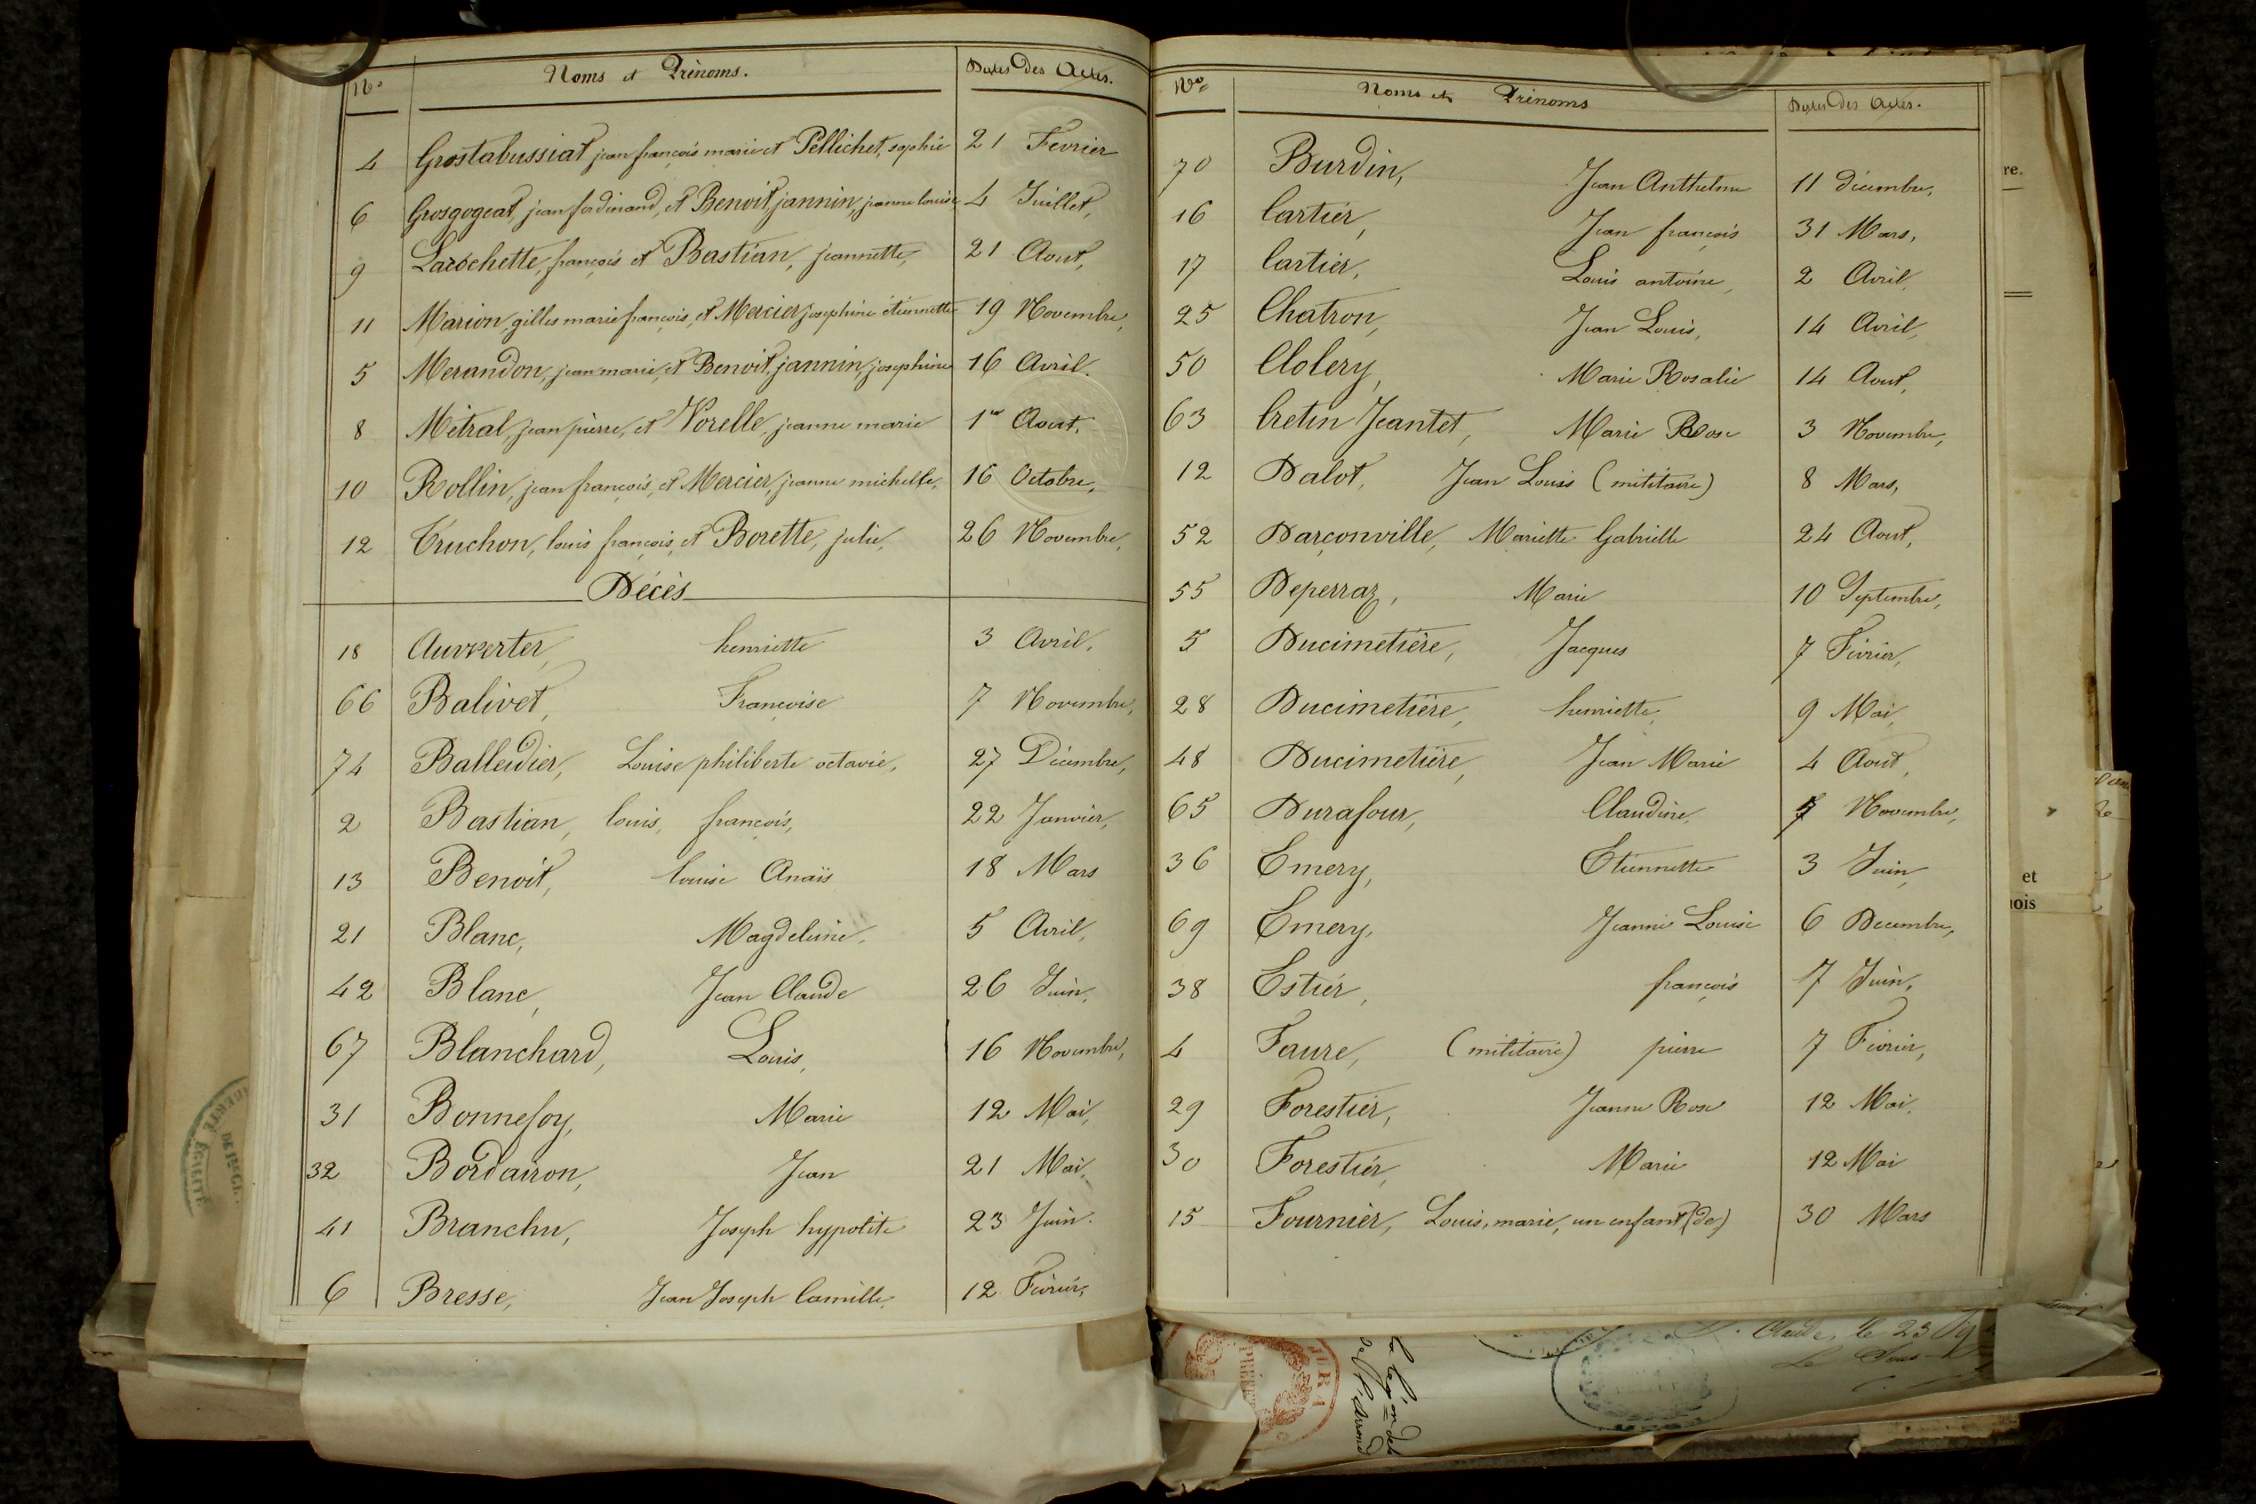 No Noms et Prénoms. Dates des Actes.
4 Grostabussiat jean françois marie et Pellichet, sophie 21 Fevrier
6 Grosgogeat, jean ferdinand, et Benoit, jannin, jeanne louise, 4 Juillet,
9 Larochette, françois et Bastian, jeannette, 21 Aout,
11 Marion, gilles marie françois, et Mercier josephine étiennette 19 Novembre,
5 Merandon, jean marie, et Benoit, jannin, josephine 16 Avril.
8 Métral, jean pierre, et Vorelle, jeanne marie 1er Aout.
10 Rollin, jean françois, et Mercier, jeanne michelle, 16 Octobre,
12 Truchon, louis françois, et Borette, julie, 26 Novembre,
Décès
18 Auverter, henriette 3 Avril,
66 Balivet, Françoise 7 Novembre,
74 Balleidier, Louise philiberte octavie, 27 Décembre,
2 Bastian, louis, françois, 22 Janvier,
13 Benoit, louise Anaïs 18 Mars
21 Blanc, Magdeleine, 5 Avril,
42 Blanc, Jean Claude 26 Juin,
67 Blanchard, Louis, 16 Novembre,
31 Bonnefoy, Marie 12 Mai,
32 Bordairon, Jean 21 Mai,
41 Branchu, Joseph hypolite 23 Juin.
6 Bresse, Jean Joseph Camille, 12 Février,
No Noms et Prénoms Dates des Actes.
70 Burdin, Jean Anthelme 11 Décembre,
16 Cartier, Jean françois 31 Mars,
17 Cartier, Louis antoine, 2 Avril,
25 Chatron, Jean Louis, 14 Avril,
50 Clolery, Marie Rosalie 14 Aout,
63 Cretin Jeantet, Marie Rose 3 Novembre,
12 Dalot, Jean Louis (militaire) 8 Mars,
52 Darçonville, Mariette Gabrielle 24 Aout,
55 Deperraz, Marie 10 Septembre,
5 Ducimetière, Jacques 7 Février,
28 Ducimetière, henriette, 9 Mai,
48 Ducimetière, Jean Marie 4 Aout,
65 Durafour, Claudine, Novembre,
36 Emery, Etiennette 3 Juin,
69 Emery, Jeanne Louise 6 Decembre,
38 Estier, françois 7 Juin,
4 Faure, (militaire) pierre 7 Février,
29 Forestier, Jeanne Rose 12 Mai,
30 Forestier, Marie 12 Mai
15 Fournier, Louis, marie, un enfant (de) 30 Mars
re.
et
nois
JURA
Claude, le 23